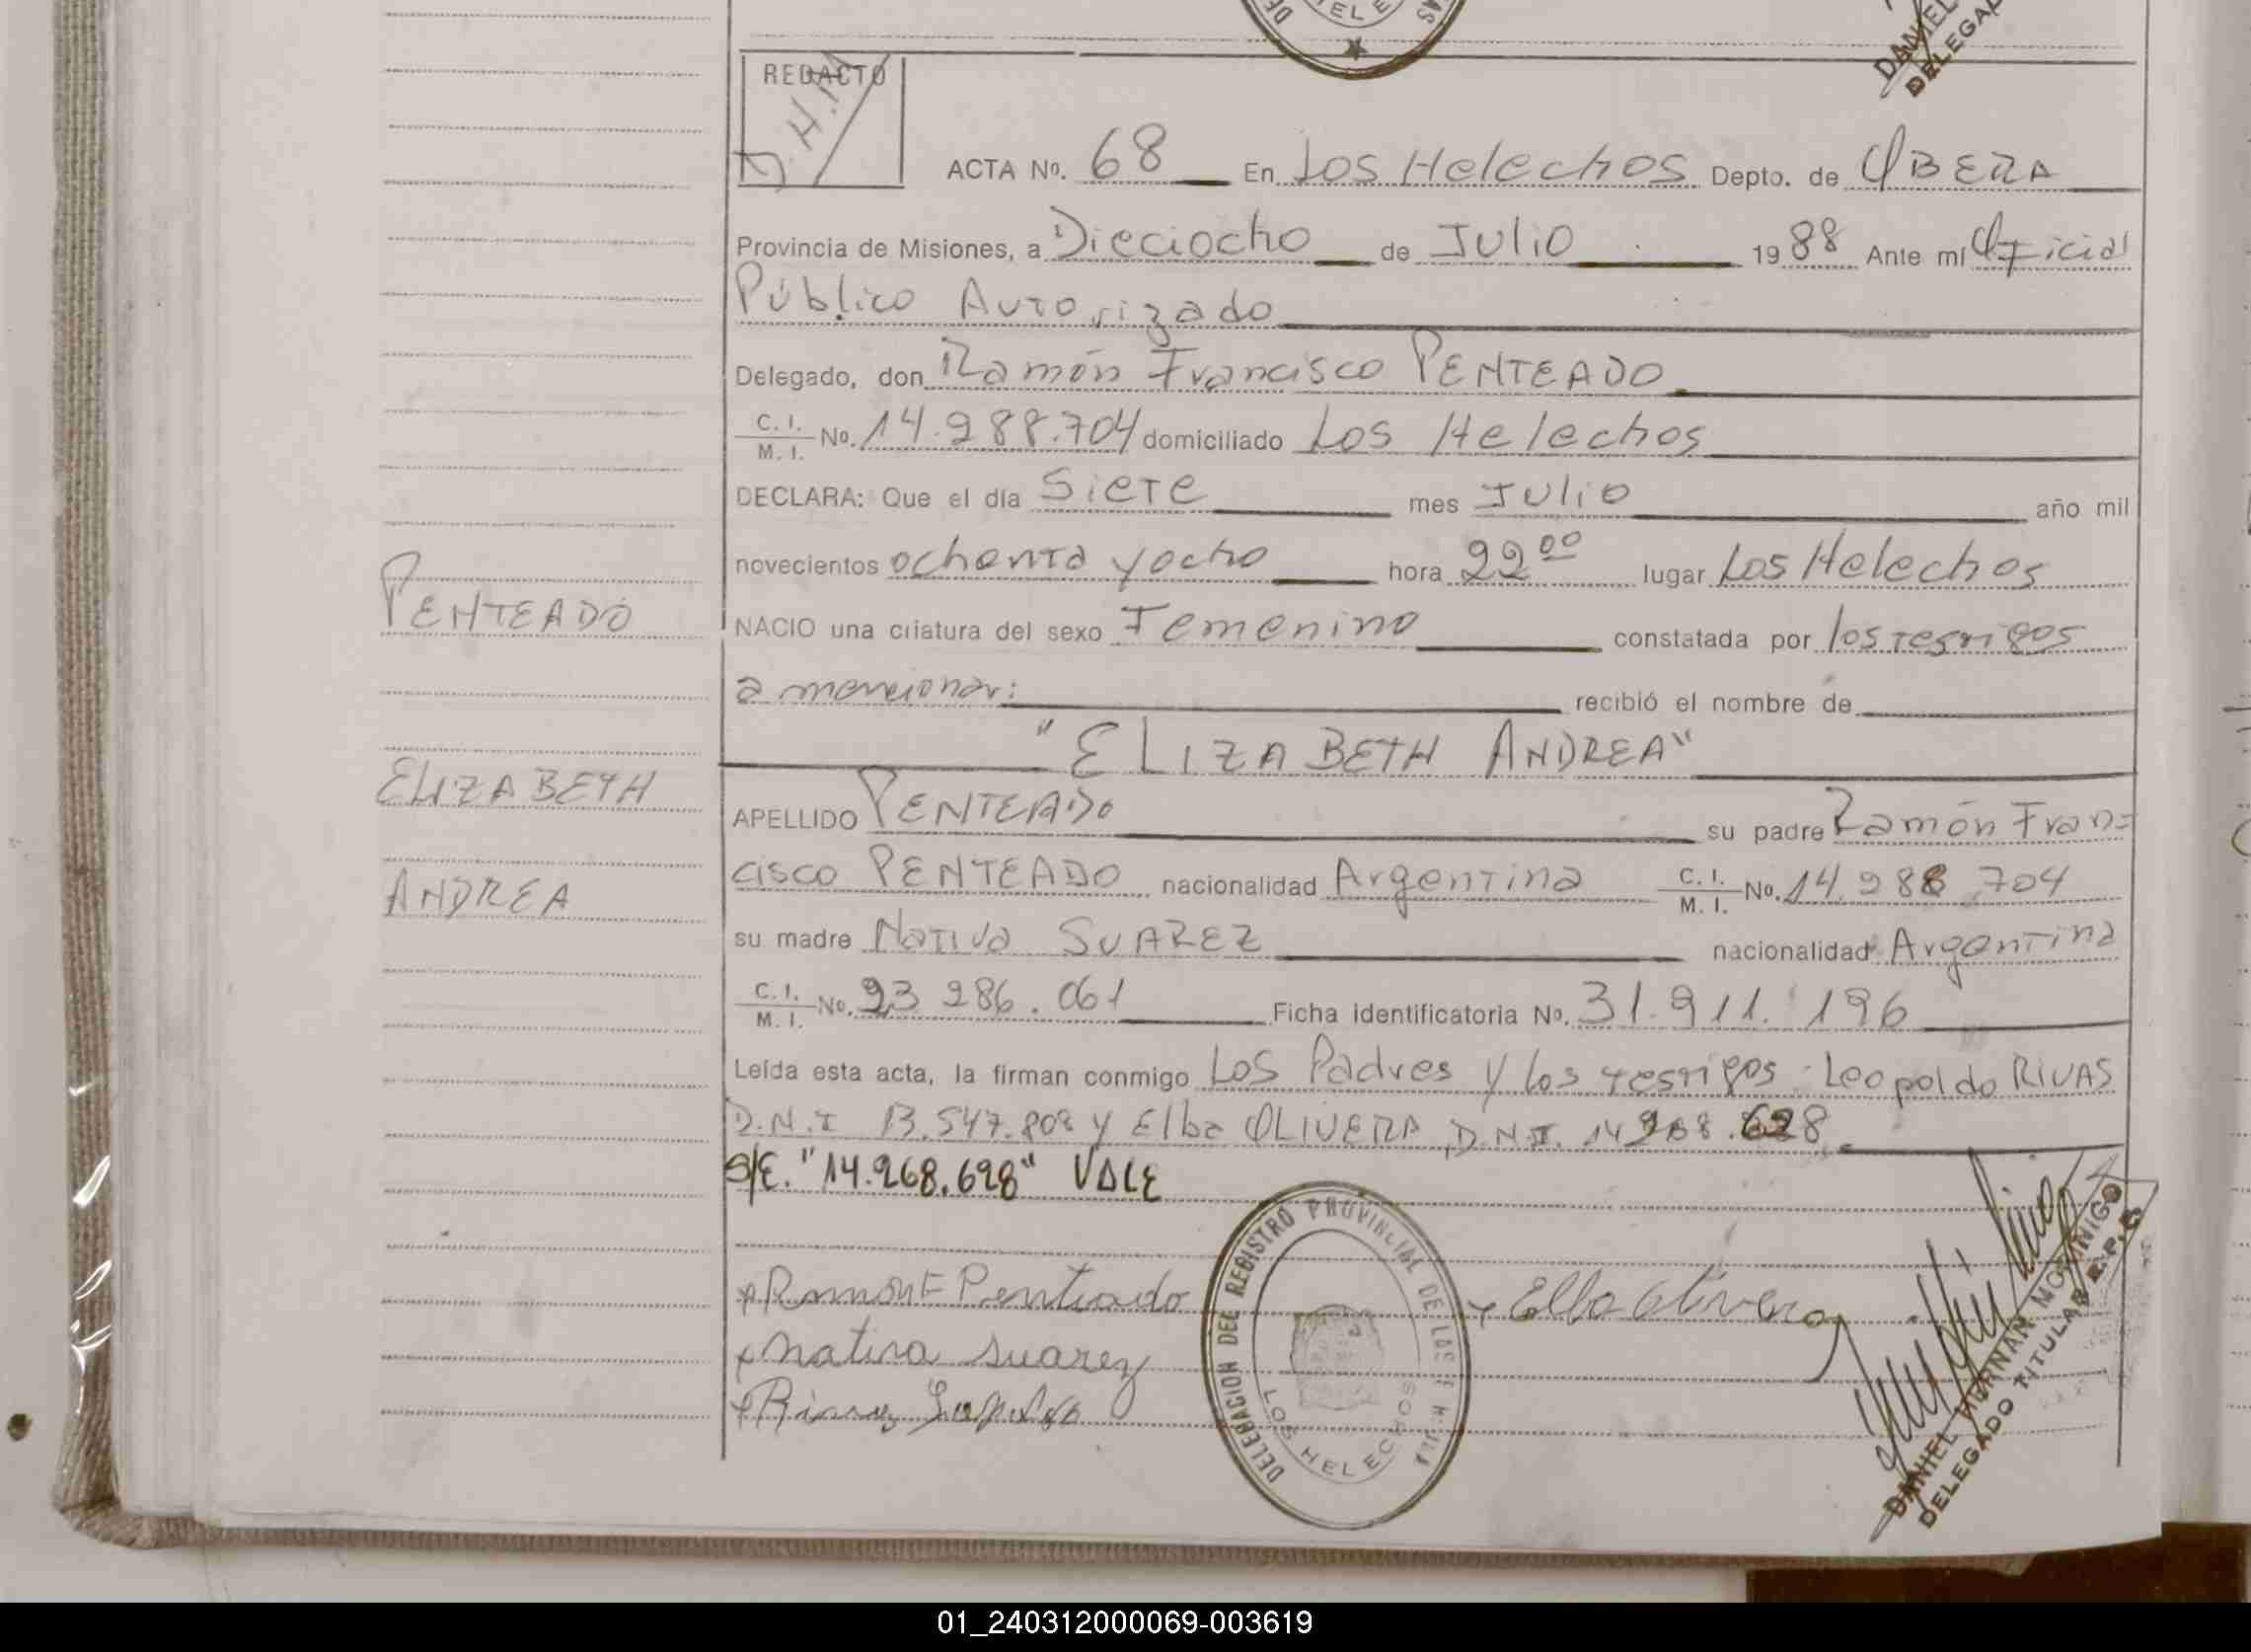 DANIEL
DELEGAD
REDACTO
D.H.M
ACTA No. 68 En Los Helechos Depto. de OBERA
Provincia de Misiones, a Dieciocho de Julio 1988 Ante mí Oficial
Público Autorizado
Delegado, don Ramón Francisco PENTEADO
C. I.
M. I. No. 14.988.704 domiciliado Los Helechos
DECLARA: Que el día Siete mes Julio año mil
novecientos ochenta y ocho hora 22 00 lugar Los Helechos
PENTEADO
NACIO una criatura del sexo Femenino constatada por los testigos
a mencionar: recibió el nombre de
"ELIZABETH ANDREA"
ELIZABETH
APELLIDO PENTEADO su padre Ramón Fran=
cisco PENTEADO nacionalidad Argentina C. I.
M. I. No. 14.988.704
ANDREA
su madre Nativa SUAREZ nacionalidad Argentina
C. I.
M. I. No. 93 286.061 Ficha identificatoria No. 31.911.196
Leída esta acta, la firman conmigo Los Padres y los testigos: Leopoldo RIVAS
D.N.I 13.547.808 y Elba OLIVERA, D.N.I. 14 268.628
S/E. "14.268.628" VALE
x Ramón F Penteado
x Elba Olivera
x nativa suarez
x Rivas Leopoldo
DELEGACION DEL REGISTRO PROVINCIAL DE LAS P
LOS HELECHOS
DANIEL HERNAN MORINIGO
DELEGADO TITULAR R.P.P.
01_240312000069-003619